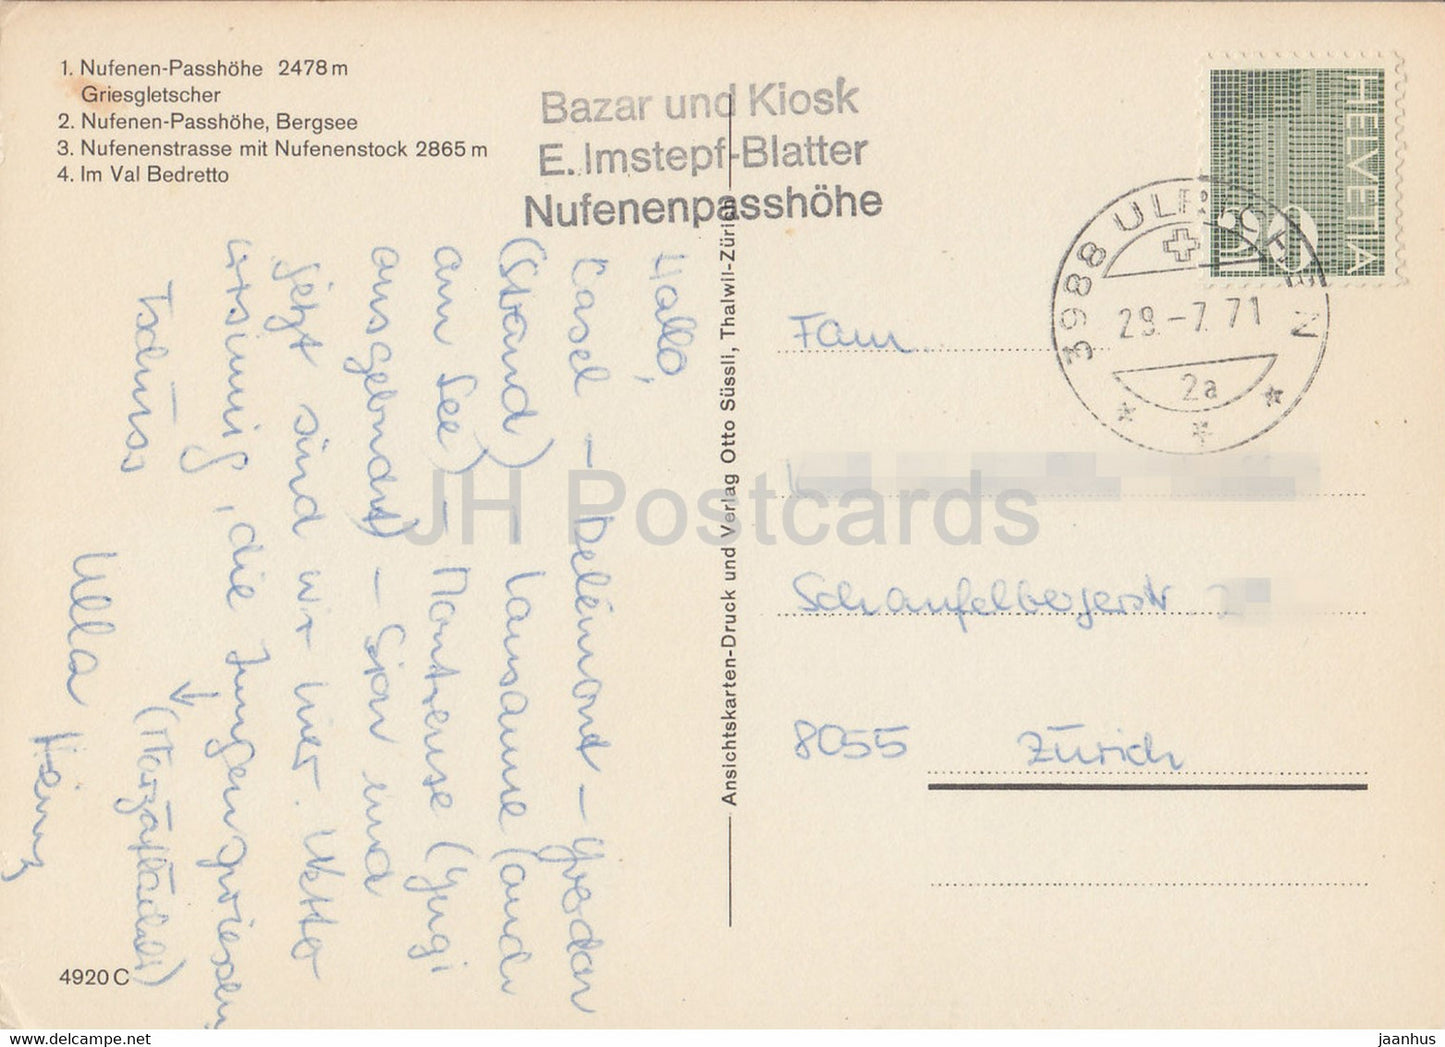 1. Nufenen-Passhöhe 2478 m
Griesgletscher
2. Nufenen-Passhöhe, Bergsee
3. Nufenenstrasse mit Nufenenstock 2865 m
4. Im Val Bedretto
Bazar und Kiosk
E. Imstepf-Blatter
Nufenenpasshöhe
HELVETIA
50
3988 ULRICHEN
29.-7.71
2a
Hallo,
Casel - Delémont - Yverdon
(Strand) - Lausanne (auch
am See) - Montreuse (Gugi
ausgebadet) - Sion und
jetzt sind wir hier. Wetter
, die Jungen
Tschüss
Ulla
Heinz
Ansichtskarten-Druck und Verlag Otto Süssli, Thalwil-Zürich
Fam.
K
Schaufelbergerstr. 2
8055 Zürich
4920 C
JH Postcards
jaanhus
www.delcampe.net